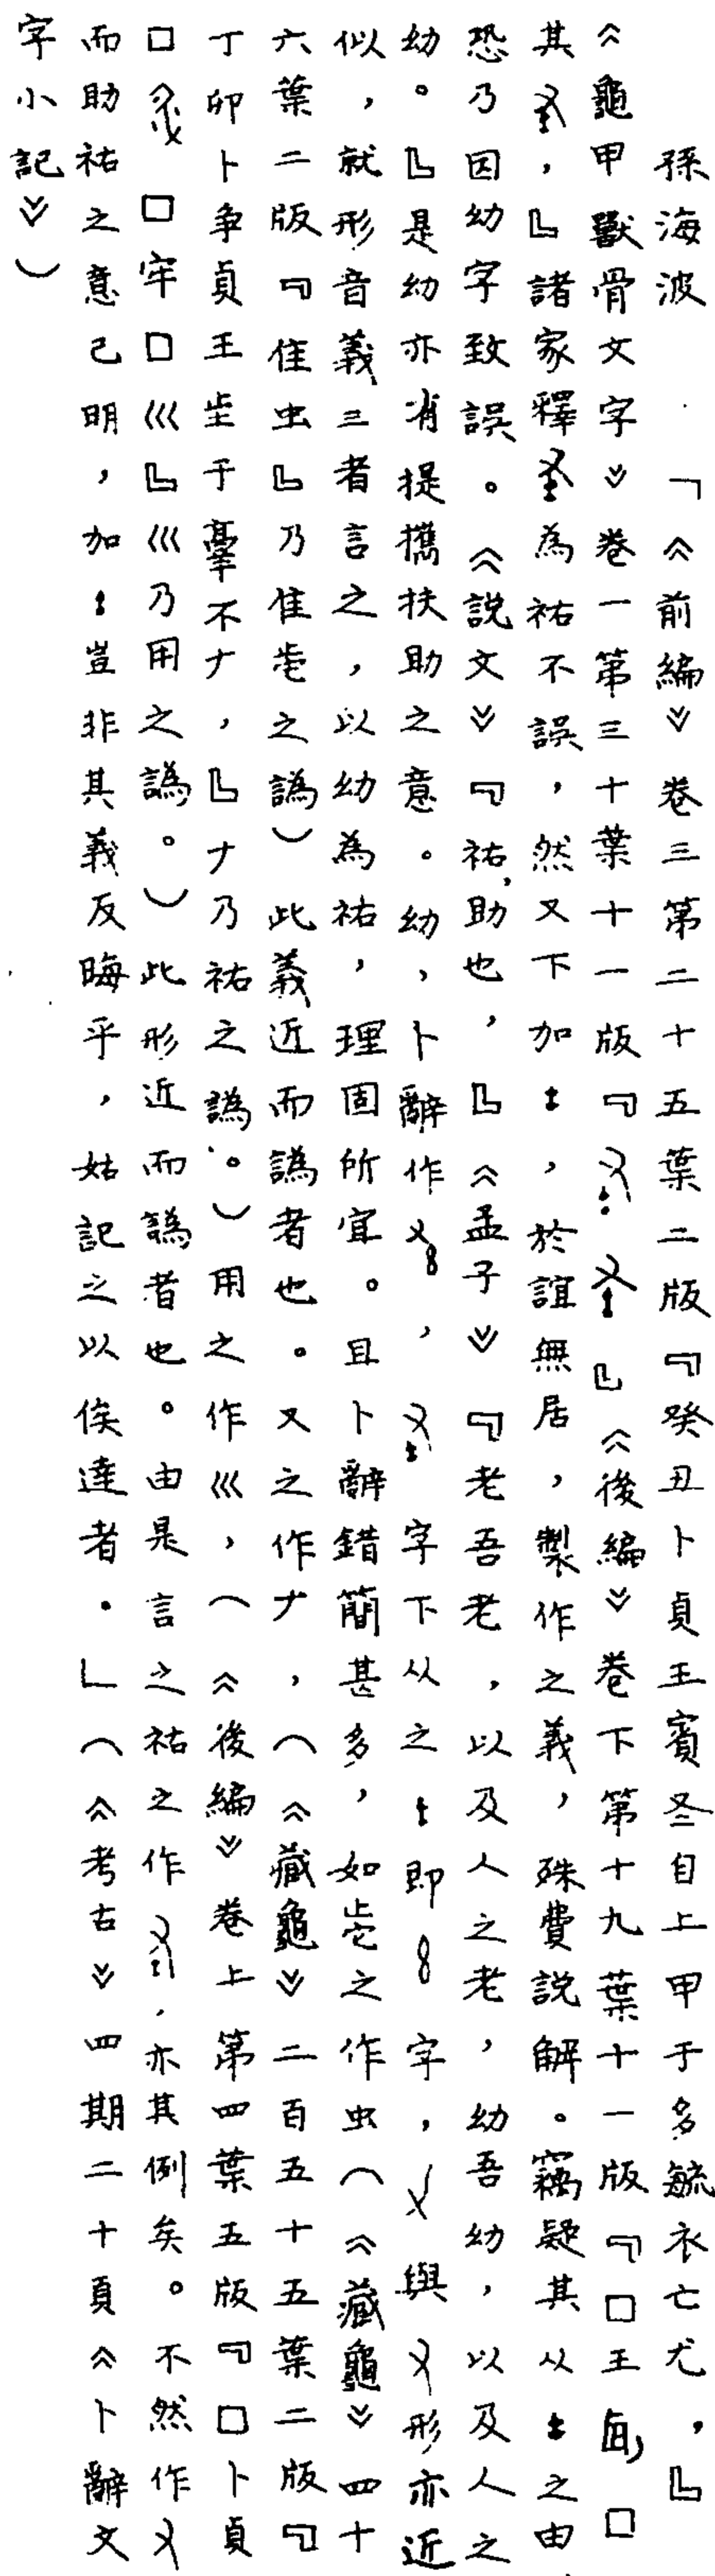 孫海波　「《前編》卷三第二十五葉二版『癸丑卜貞王賓冬自上甲于多毓衣亡尤，』
《龜甲獸骨文字》卷一第三十葉十一版『　』《後編》卷下第十九葉十一版『□王　□
其　，』諸家釋　為祐不誤，然又下加　，於誼無居，製作之義，殊費說解。竊疑其从　之由，
恐乃因幼字致誤。《說文》『祐，助也，』《孟子》『老吾老，以及人之老，幼吾幼，以及人之
幼。』是幼亦有提攜扶助之意。幼，卜辭作　，　字下从之　即　字，　與　形亦近
似，就形音義三者言之，以幼為祐，理固所宜。且卜辭錯簡甚多，如　之作虫（《藏龜》四十
六葉二版『隹虫』乃隹　之譌）此義近而譌者也。又之作ナ，（《藏龜》二百五十五葉二版『
丁卯卜爭貞王坒于　不ナ，』ナ乃祐之譌。）用之作巛，（《後編》卷上第四葉五版『□卜貞
□　□牢□巛』巛乃用之譌。）此形近而譌者也。由是言之祐之作　，亦其例矣。不然作　
而助祐之意已明，加　豈非其義反晦乎，姑記之以俟達者。」（《考古》四期二十頁《卜辭文
字小記》）